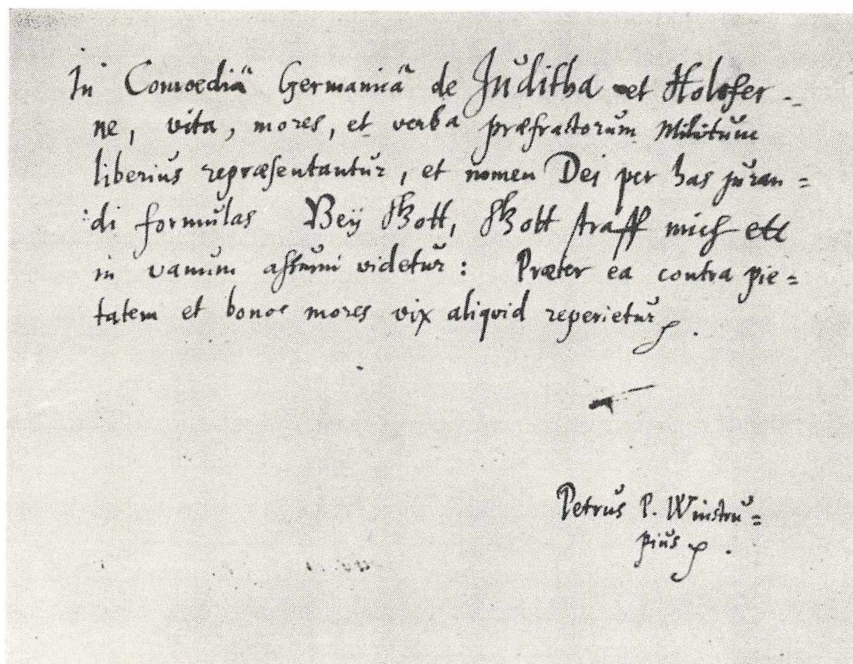 In Comoediā Germanicā de Juditha et Holofer-
ne, vita, mores, et verba præfractorum Militum
liberius repræsentantur, et nomen Dei per has juran=
di formulas Beÿ Gott, Gott straff mich etc
in vanum assumi videtur: Præter ea contra pie=
tatem et bonos mores vix aliquid reperietur.
Petrus P. Winstru=
pius.